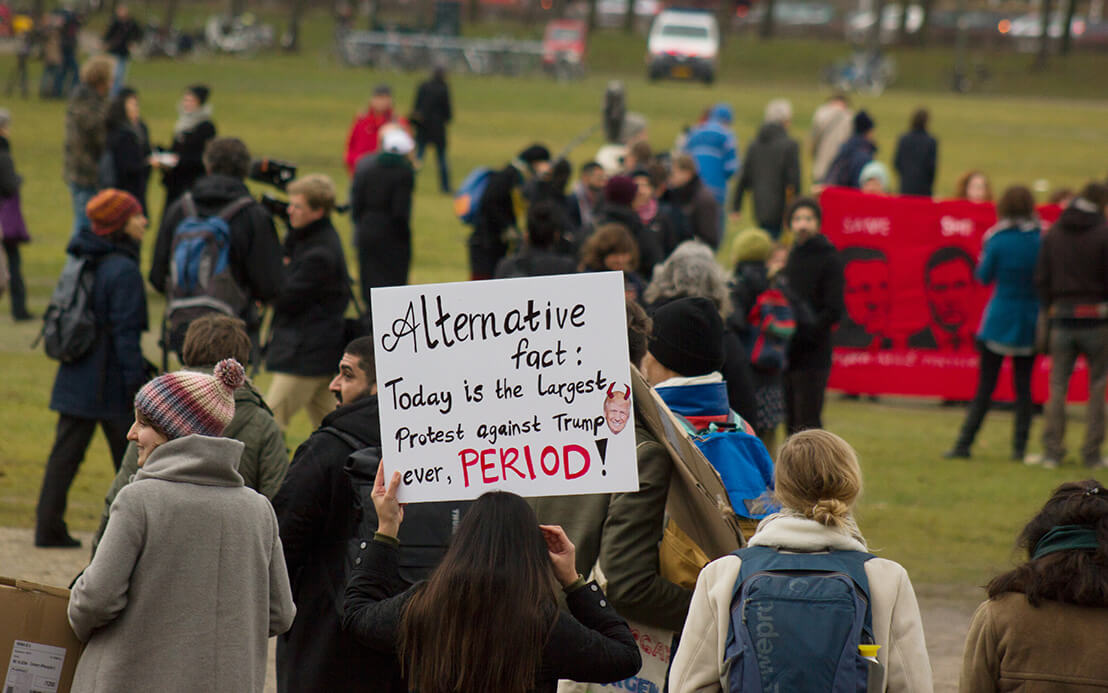 Alternative
fact:
Today is the largest
Protest against Trump
ever, PERIOD!
wepro